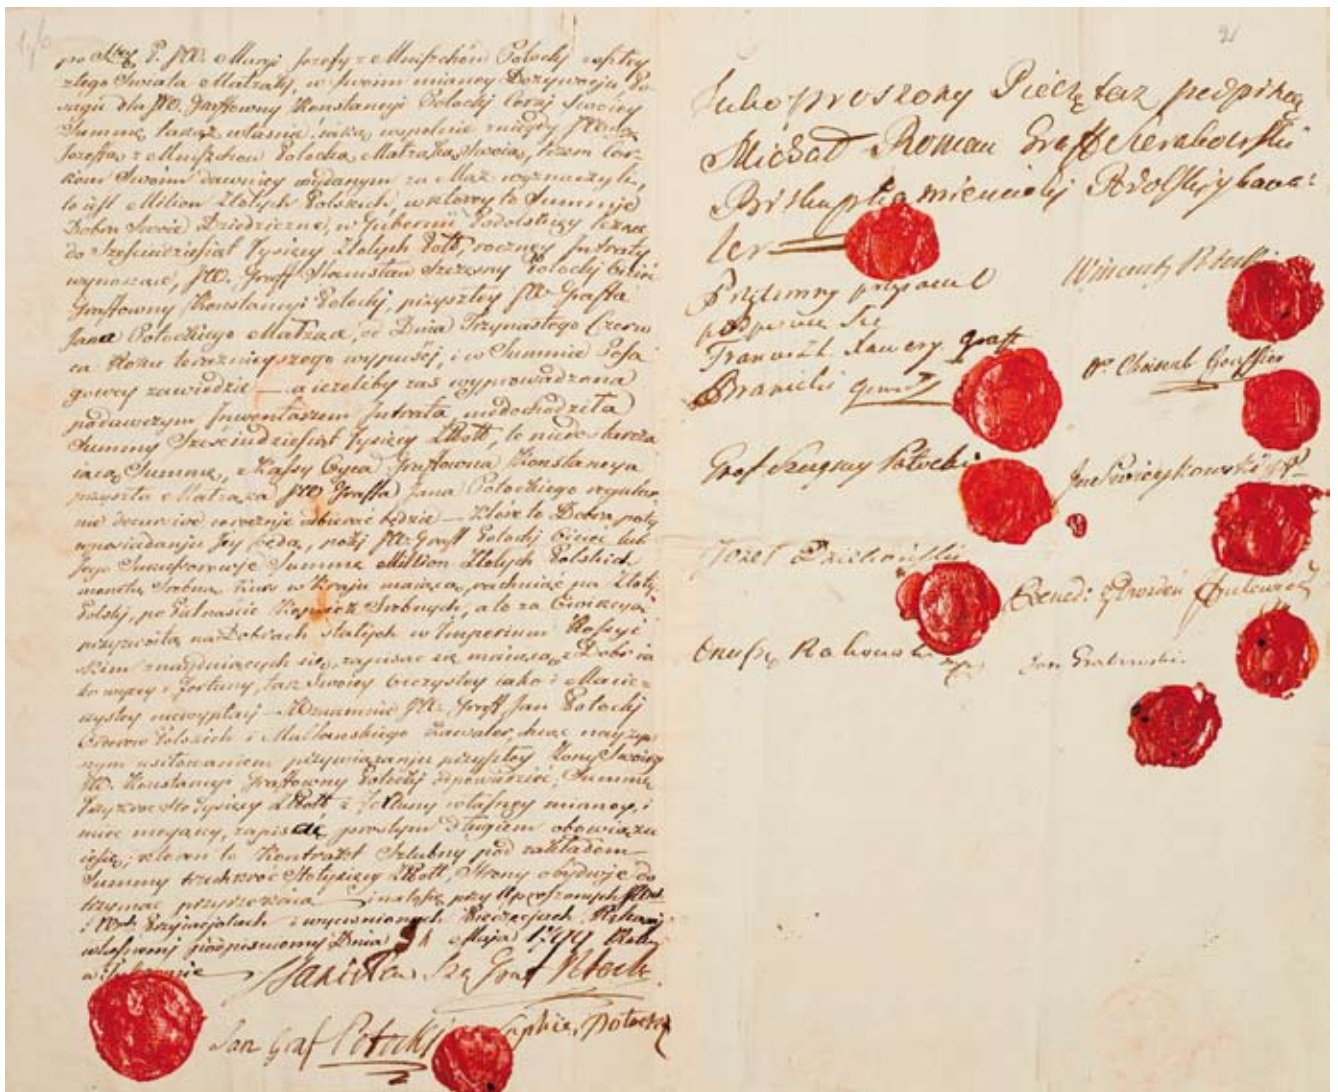 po P. JW. Maryi Jozefy z Mniszchow Potocky zeszłey
z tego Swiata Matząki, w Swoim mianey Dozywociu, Po-
sagu dla JW. Graffowny Konstancyi Potocky Corki Swoiey
Summę takąż własnie, iaką wspolnie niegdy JW.
Jozeffą z Mniszchow Potocką Matząką Swoią, trzem Cor-
kom Swoim dawniey wydanym za Mąż wyznaczył,
to iest Milion Złotych Polskich, w ktorey to Summie
Dobra Swoie Dziedziczne, w Gubernii Podolskiey
do Sześciudziesiąt Tysięcy Złotych Poll, roczney Intraty
wynoszące, JW. Graff Stanisław Szczesny Potocky Ociec
Graffowny Konstancyi Potocky, przyszłey JW Graffa
Jana Potockiego Matząc, od Dnia Trzynastego Czerw-
ca Roku teraznieyszego wypuści, i w Summie Posa
gowey zawiedzie — a ieżeliby zas wyprowadzona
podawczym Inwentarzem Intrata, niedochodziła
Summy Sześciudziesiąt Tysięcy Zł Poll, to niedostarcza
iącą Summę, z Kassy Oyca Graffowna Konstancya
przyszła Matząka JW Graffa Jana Potockiego regular
nie corocznie odbierać będzie — Ktore to Dobra, poty
w posiadaniu Jey będą, poki JW. Graff Potocky Ociec lub
Jego Sukcessorowie Summę Million Złotych Polskich
monetą Srebrną kurs w Kraju maiącą, rachuiąc po Złoty
Polsky, po Pietnascie Kopieiek Srebrnych, ale za Ewikcyą
przyzwoitą na Dobrach stałych w Imperium Rossyi
skim znayduiących się, zapisać się maiącą, z Dobr ia
ko wyżey i Fortuny, tak Swoiey Oyczystey iako i Macie-
rzystey niewypłaci — Wzaiemnie JW. Graff Jan Potocky
Orderow Polskich i Maltanskiego Kawaler, chcąc nayszcze-
rszym usiłowaniem przywiązaniu przyszłey Zony Swoiey
JW. Konstancyi Graffowny Potocky odpowiedzieć, Summę
Trzykroć Sto Tysięcy Zł Poll, z Fortuny własney mianey, i
mieć mogącey, zapisać prostym długiem obowiązu
ie się, ktoren to Kontrakt Szlubny pod zakładem
Summy trzechkroć Stotysięcy Zł Poll, Strony obydwie do
trzymać przyrzekaią — i na to się przy Uproszonych
Przyiaciołach i wycisnionych Pieczęciach, Rękami
własnemi podpisuiemy Dnia Maja 1799 Roku
w Tulczynie
Stanisław Szcz Graf Potocki
Jan Graf Potocki Sophie Potocka
Jako proszony Pieczętarz podpisuię
Michał Roman Graff Sierakowski
Biskup Kamieniecki Podolski y Kawa-
ler
Wincenty Potocki
Przytomny przyiaciel
podpisuie Się
Franciszek Xawery graff
Branicki
Choiseul Gouffier
Graf Szczęsny Potocki
Jozef
Bened:
Onufry
Jan Grabowski